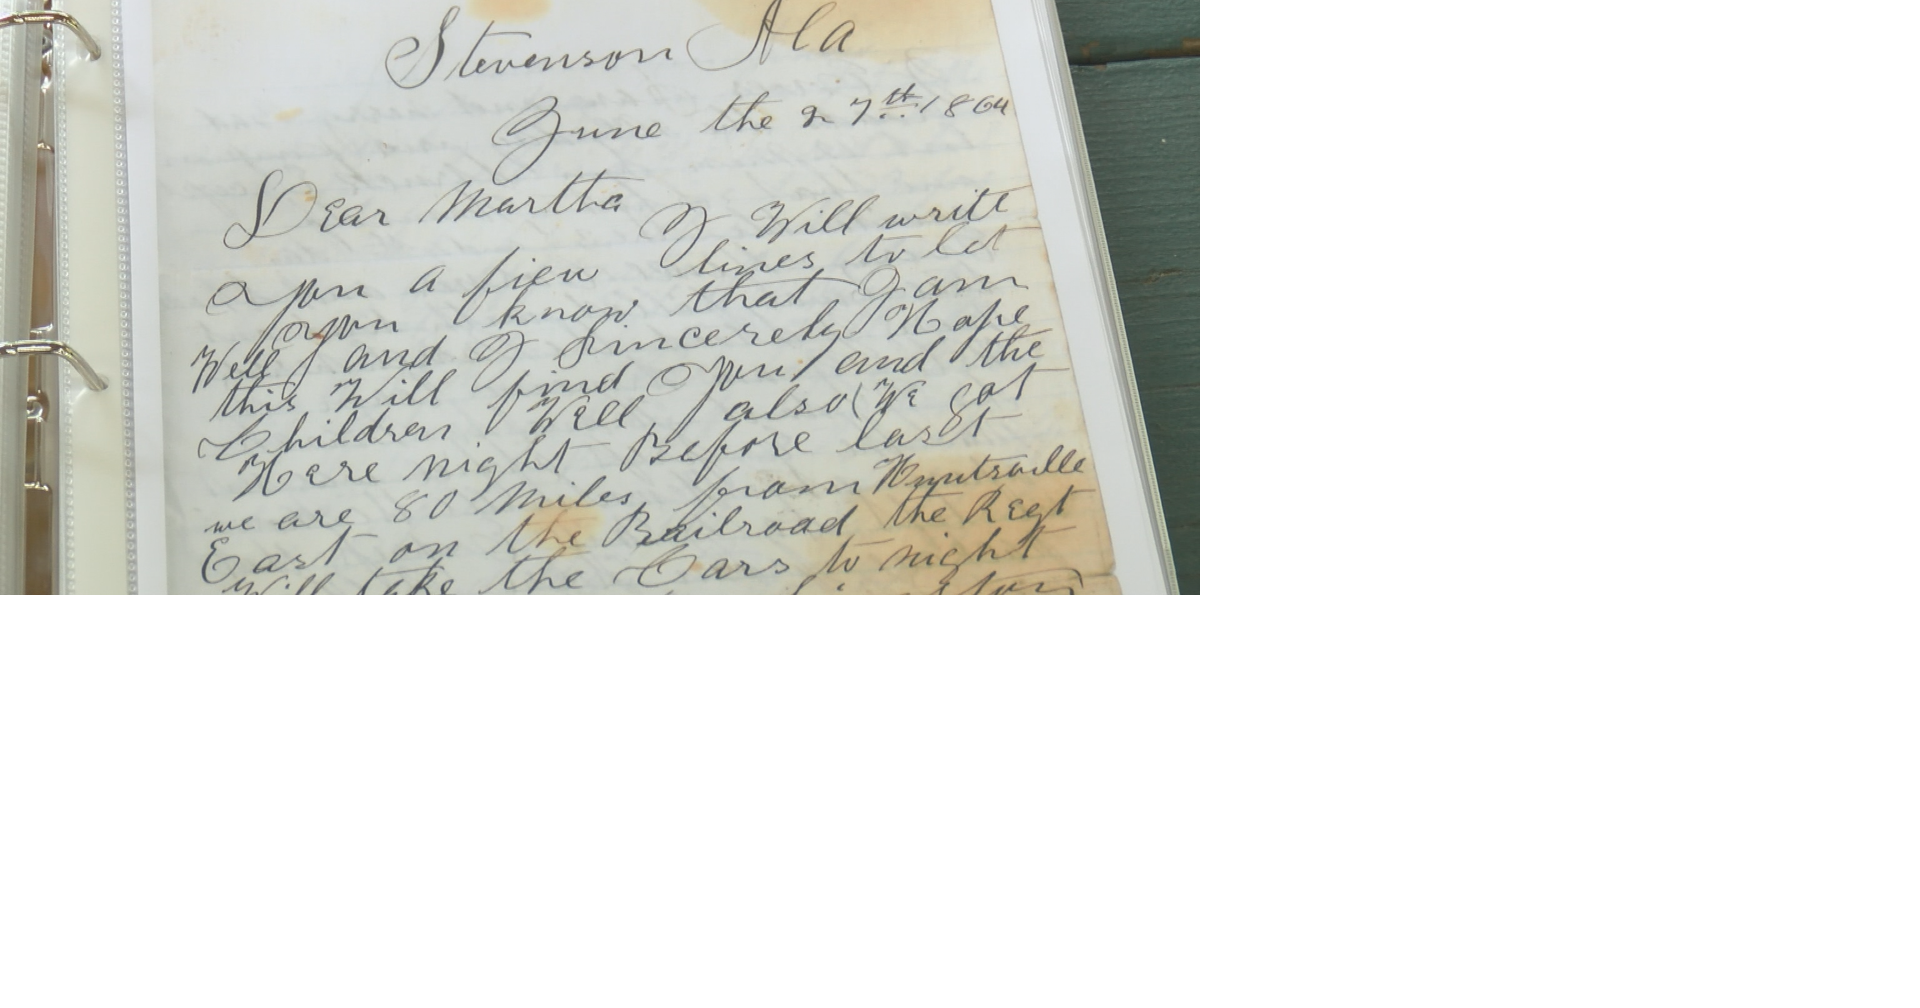 Stevenson Ala
June the 27th 1864
Dear Martha I Will write
you a fiew lines to let
you know that I am
Well and I Sincerely Hope
this Will find you and the
Children Well also We got
Here night Before last
we are 80 miles from Huntsville
East on the Railroad the Regt
Will take the Cars to night